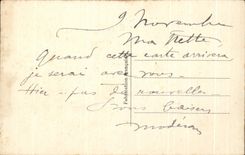 9 Novembre
Ma
Quand cette carte arrivera
je serai avec vous.
Hier - pas de nouvelle
Bons baisers